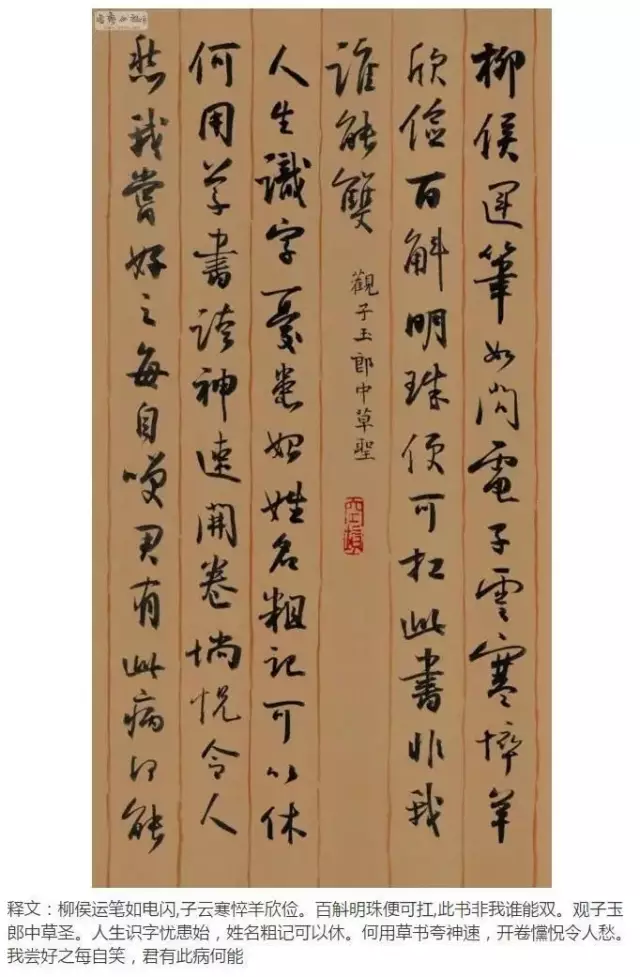 柳侯運筆如閃電子雲寒悴羊
欣儉百斛明珠便可扛此書非我
誰能雙
觀子玉郎中草聖
人生識字憂患始姓名粗記可以休
何用草書誇神速開卷惝怳令人
愁我嘗好之每自笑君有此病何能
释文：柳侯运笔如电闪,子云寒悴羊欣俭。百斛明珠便可扛,此书非我谁能双。观子玉
郎中草圣。人生识字忧患始，姓名粗记可以休。何用草书夸神速，开卷戃怳令人愁。
我尝好之每自笑，君有此病何能